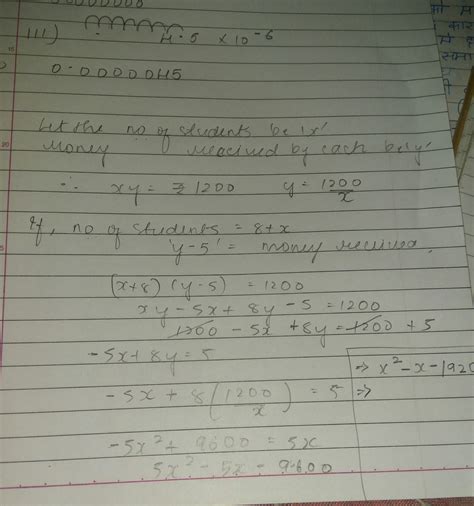 III) 4.5 × 10⁻⁶
0.0000045
Let the no of students be 'x'
Money received by each be 'y'
∴ xy = ₹ 1200 y = 1200/x
If, no of students = 8+x
'y-5' = money received
(x+8) (y-5) = 1200
xy - 5x + 8y - 5 = 1200
1200 - 5x + 8y = 1200 + 5
-5x + 8y = 5
-5x + 8(1200/x) = 5
-5x² + 9600 = 5x
5x² - 5x - 9600
⇒ x² - x - 1920
⇒